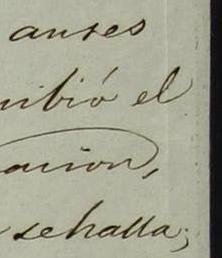 antes
cibió el
ación,
se halla;